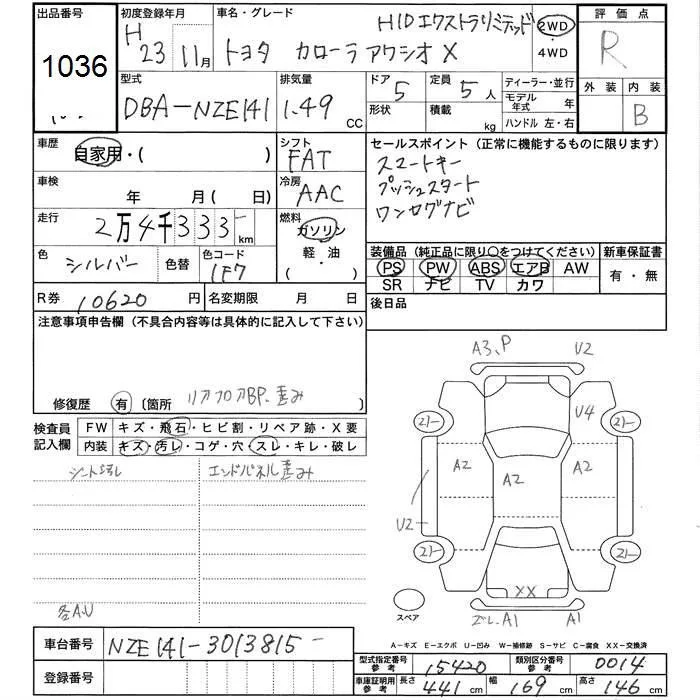 出品番号
1036
初度登録年月
H 23 11月
車名・グレード
トヨタ カローラアクシオ X
HIDエクストラリミテッド
2WD
・
4WD
評価点
R
外装 内装
B
型式
DBA-NZE141
排気量
1.49 CC
ドア 5
形状
定員 5 人
積載 kg
ディーラー・並行
モデル年式 年
ハンドル 左・右
車歴
自家用・( )
シフト
FAT
車検
年 月( 日)
冷房
AAC
走行
2万4千333 km
燃料
ガソリン
軽・油
・( )
色
シルバー
色替
色コード
1F7
R券 10620 円
名変期限 月 日
セールスポイント (正常に機能するものに限ります)
スマートキー
プッシュスタート
ワンセグナビ
装備品 (純正品に限り○をつけてください)
PS PW ABS エアB AW
SR ナビ TV カワ
新車保証書
有・無
後日品
注意事項申告欄 (不具合内容等は具体的に記入して下さい)
修復歴 有 〔箇所 リアフロアBP.歪み
検査員記入欄
FW キズ・飛石・ヒビ割・リペア跡・X要
内装 キズ・汚レ・コゲ・穴・スレ・キレ・破レ
シート汚レ
エンドパネル歪み
各A.U
A3,P U2
U4
A2 A2 A2
U2
XX
A1 A1
スペア
A-キズ E-エクボ U-凹み W-補修跡 S-サビ C-腐食 XX-交換済
車台番号 NZE141-3013815
登録番号
型式指定番号参考 15420
類別区分番号参考 0014
車庫証明用参考 長さ 441 cm 幅 169 cm 高さ 146 cm